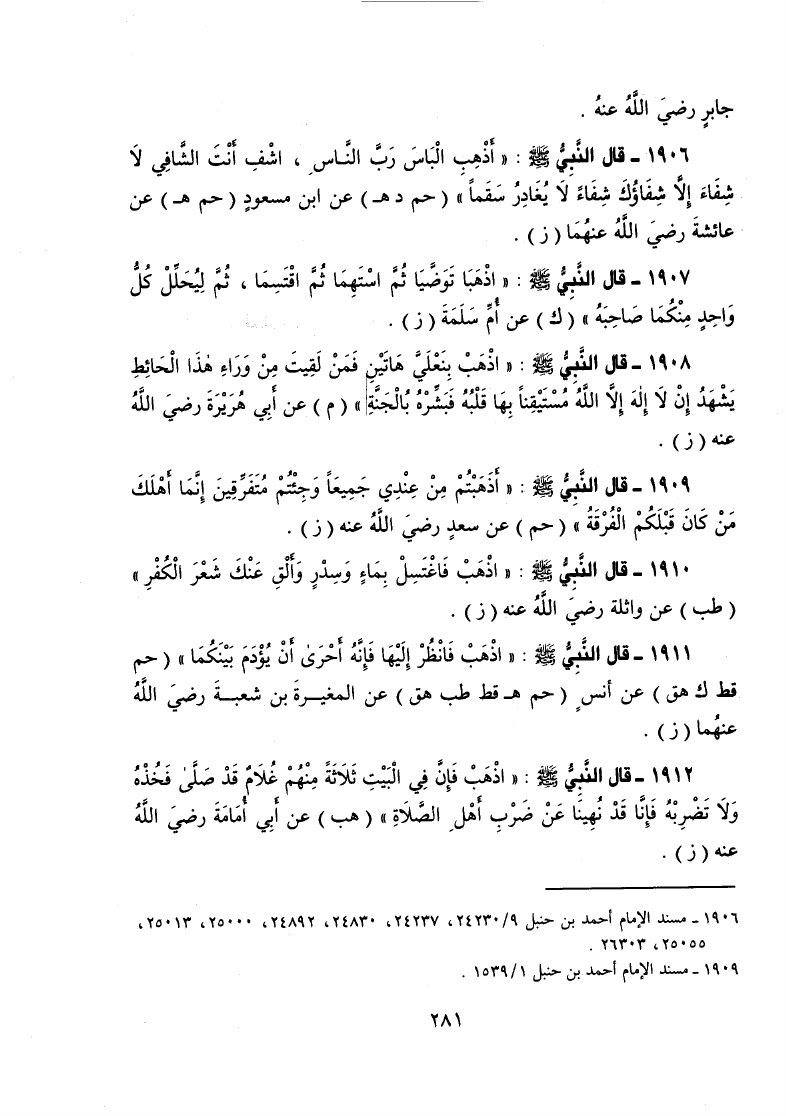 جابرٍ رضيَ اللَّهُ عنهُ .
١٩٠٦ ـ قال النَّبيُّ ﷺ : « أَذْهِبِ الْبَاسَ رَبَّ النَّـاسِ ، اشْفِ أَنْتَ الشَّافِي لَا
شِفَاءَ إِلَّا شِفَاؤُكَ شِفَاءً لَا يُغَادِرُ سَقَماً » ( حم د هـ ) عن ابن مسعودٍ ( حم هـ ) عن
عائشةَ رضيَ اللَّهُ عنهُمَا ( ز ) .
١٩٠٧ ـ قال النَّبيُّ ﷺ : « اذْهَبَا تَوَضَّيَا ثُمَّ اسْتَهِمَا ثُمَّ اقْتَسِمَا ، ثُمَّ لِيُحَلِّلْ كُلُّ
وَاحِدٍ مِنْكُمَا صَاحِبَهُ » ( ك ) عن أُمِّ سَلَمَةَ ( ز ) .
١٩٠٨ ـ قال النَّبيُّ ﷺ : « اذْهَبْ بِنَعْلَيَّ هَاتَيْنِ فَمَنْ لَقِيتَ مِنْ وَرَاءِ هٰذَا الْحَائِطِ
يَشْهَدُ إِنْ لَا إِلٰهَ إِلَّا اللَّهُ مُسْتَيْقِناً بِهَا قَلْبُهُ فَبَشِّرْهُ بُالْجَنَّةِ » ( م ) عن أَبي هُرَيْرَةَ رضيَ اللَّهُ
عنه ( ز ) .
١٩٠٩ ـ قال النَّبيُّ ﷺ : « أَذَهَبْتُمْ مِنْ عِنْدِي جَمِيعَاً وَجِئْتُمْ مُتَفَرِّقِينَ إِنَّمَا أَهْلَكَ
مَنْ كَانَ قَبْلَكُمْ الْفُرْقَةُ » ( حم ) عن سعدٍ رضيَ اللَّهُ عنه ( ز ) .
١٩١٠ ـ قال النَّبيُّ ﷺ : « اذْهَبْ فَاغْتَسِلْ بِمَاءٍ وَسِدْرٍ وَأَلْقِ عَنْكَ شَعْرَ الْكُفْرِ »
( طب ) عن واثلة رضيَ اللَّهُ عنه ( ز ) .
١٩١١ ـ قال النَّبيُّ ﷺ : « اذْهَبْ فَانْظُرْ إِلَيْهَا فَإِنَّهُ أَحْرَىٰ أَنْ يُؤْدَمَ بَيْنَكُمَا » ( حم
قط ك هق ) عن أنسٍ ( حم هـ قط طب هق ) عن المغيـرةَ بن شعبـةَ رضيَ اللَّهُ
عنهُما ( ز ) .
١٩١٢ ـ قال النَّبيُّ ﷺ : « اذْهَبْ فَإِنَّ فِي الْبَيْتِ ثَلَاثَةً مِنْهُمْ غُلَامٌ قَدْ صَلَّىٰ فَخُذْهُ
وَلَا تَضْرِبْهُ فَإِنَّا قَدْ نُهِينَا عَنْ ضَرْبِ أَهْلِ الصَّلَاةِ » ( هب ) عن أَبِي أُمَامَةَ رضيَ اللَّهُ
عنه ( ز ) .
١٩٠٦ ـ مسند الإمام أحمد بن حنبل ٢٤٢٣٠/٩ ، ٢٤٢٣٧ ، ٢٤٨٣٠ ، ٢٤٨٩٢ ، ٢٥٠٠٠ ، ٢٥٠١٣ ،
٢٥٠٥٥ ، ٢٦٣٠٣ .
١٩٠٩ ـ مسند الإمام أحمد بن حنبل ١٥٣٩/١ .
٢٨١